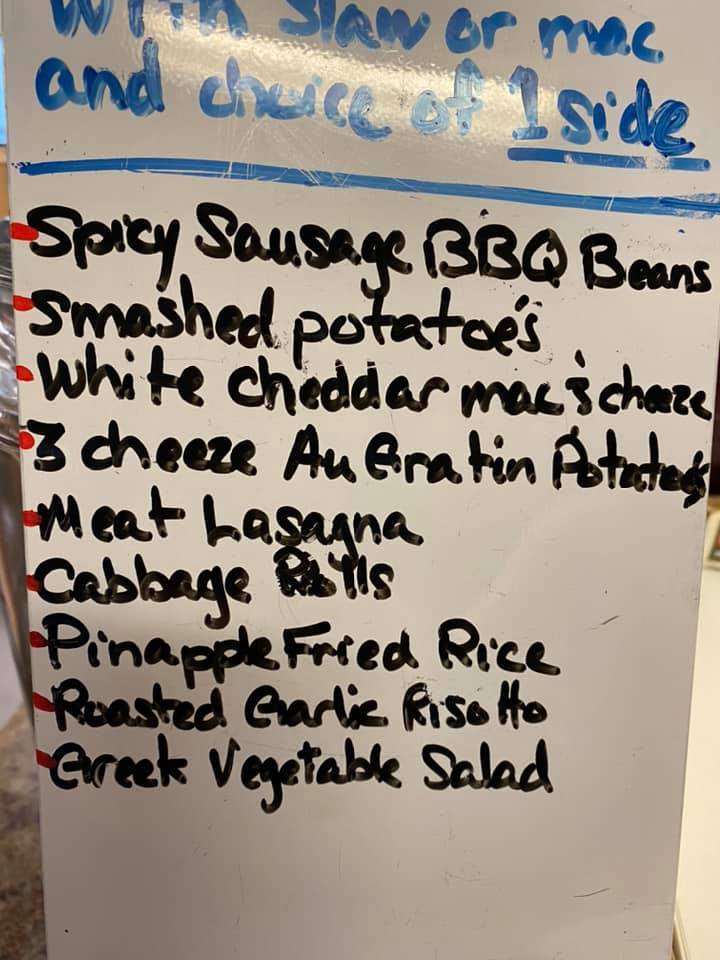 With slaw or mac
and choice of 1 side
Spicy Sausage BBQ Beans
Smashed potatoe's
White cheddar mac & cheeze
3 cheeze Au Gratin Potatoe's
Meat Lasagna
Cabbage Rolls
Pinapple Fried Rice
Roasted Garlic Risotto
Greek Vegetable Salad